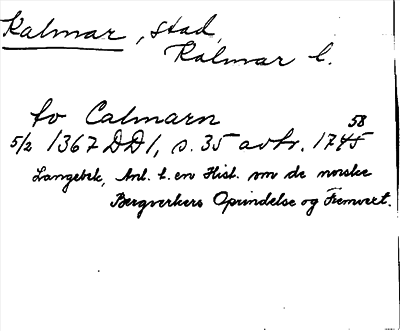 Kalmar, stad,
Kalmar l.
to Calmarn
5/2 1367 DD1, s. 35 avskr. 1745
58
Langebek, Anl. t. en Hist. om de norske
Bergverkers Oprindelse og Fremvext.